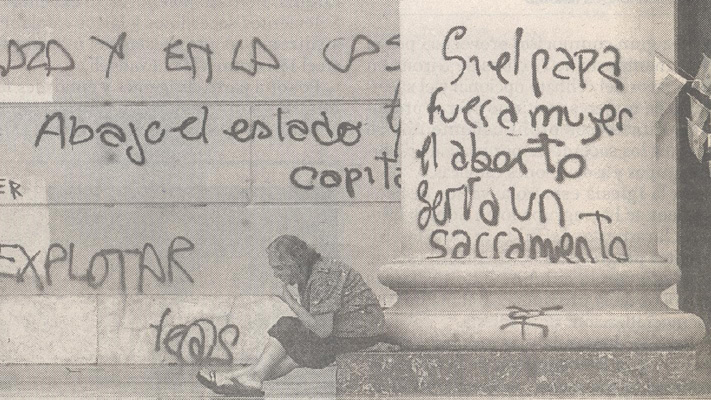 Y EN LA
Abajo el estado
EXPLOTAR
Si el papa
fuera mujer
el aborto
seria un
sacramento